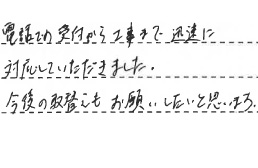 電話での受付から工事まで迅速に
対応していただきました。
今後の取替えもお願いしたいと思います。